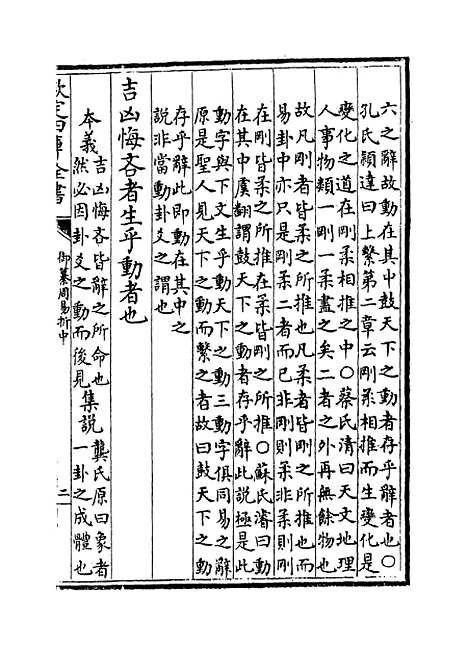 六之辭故動在其中鼓天下之動者存乎辭者也○
孔氏穎達曰上繫第二章云剛柔相推而生變化是
變化之道在剛柔相推之中○蔡氏清曰天文地理
人事物類一剛一柔盡之矣二者之外再無餘物也
故凡剛者皆柔之所推也凡柔者皆剛之所推也而
易卦中亦只是剛柔二者而已非剛則柔非柔則剛
在剛皆柔之所推在柔皆剛之所推○蘇氏濬曰動
在其中虞翻謂鼓天下之動者存乎辭此說極是此
動字與下文生乎動天下之動三動字俱同易之辭
原是聖人見天下之動而繫之者故曰鼓天下之動
存乎辭此即動在其中之
說非當動卦爻之謂也
吉凶悔吝者生乎動者也
本義吉凶悔吝皆辭之所命也
然必因卦爻之動而後見
集說龔氏原曰象者
一卦之成體也
欽定四庫全書
御纂周易折中
二